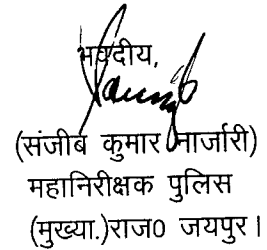 भवदीय,
(संजीब कुमार नार्जारी)
महानिरीक्षक पुलिस
(मुख्या.)राज0 जयपुर।